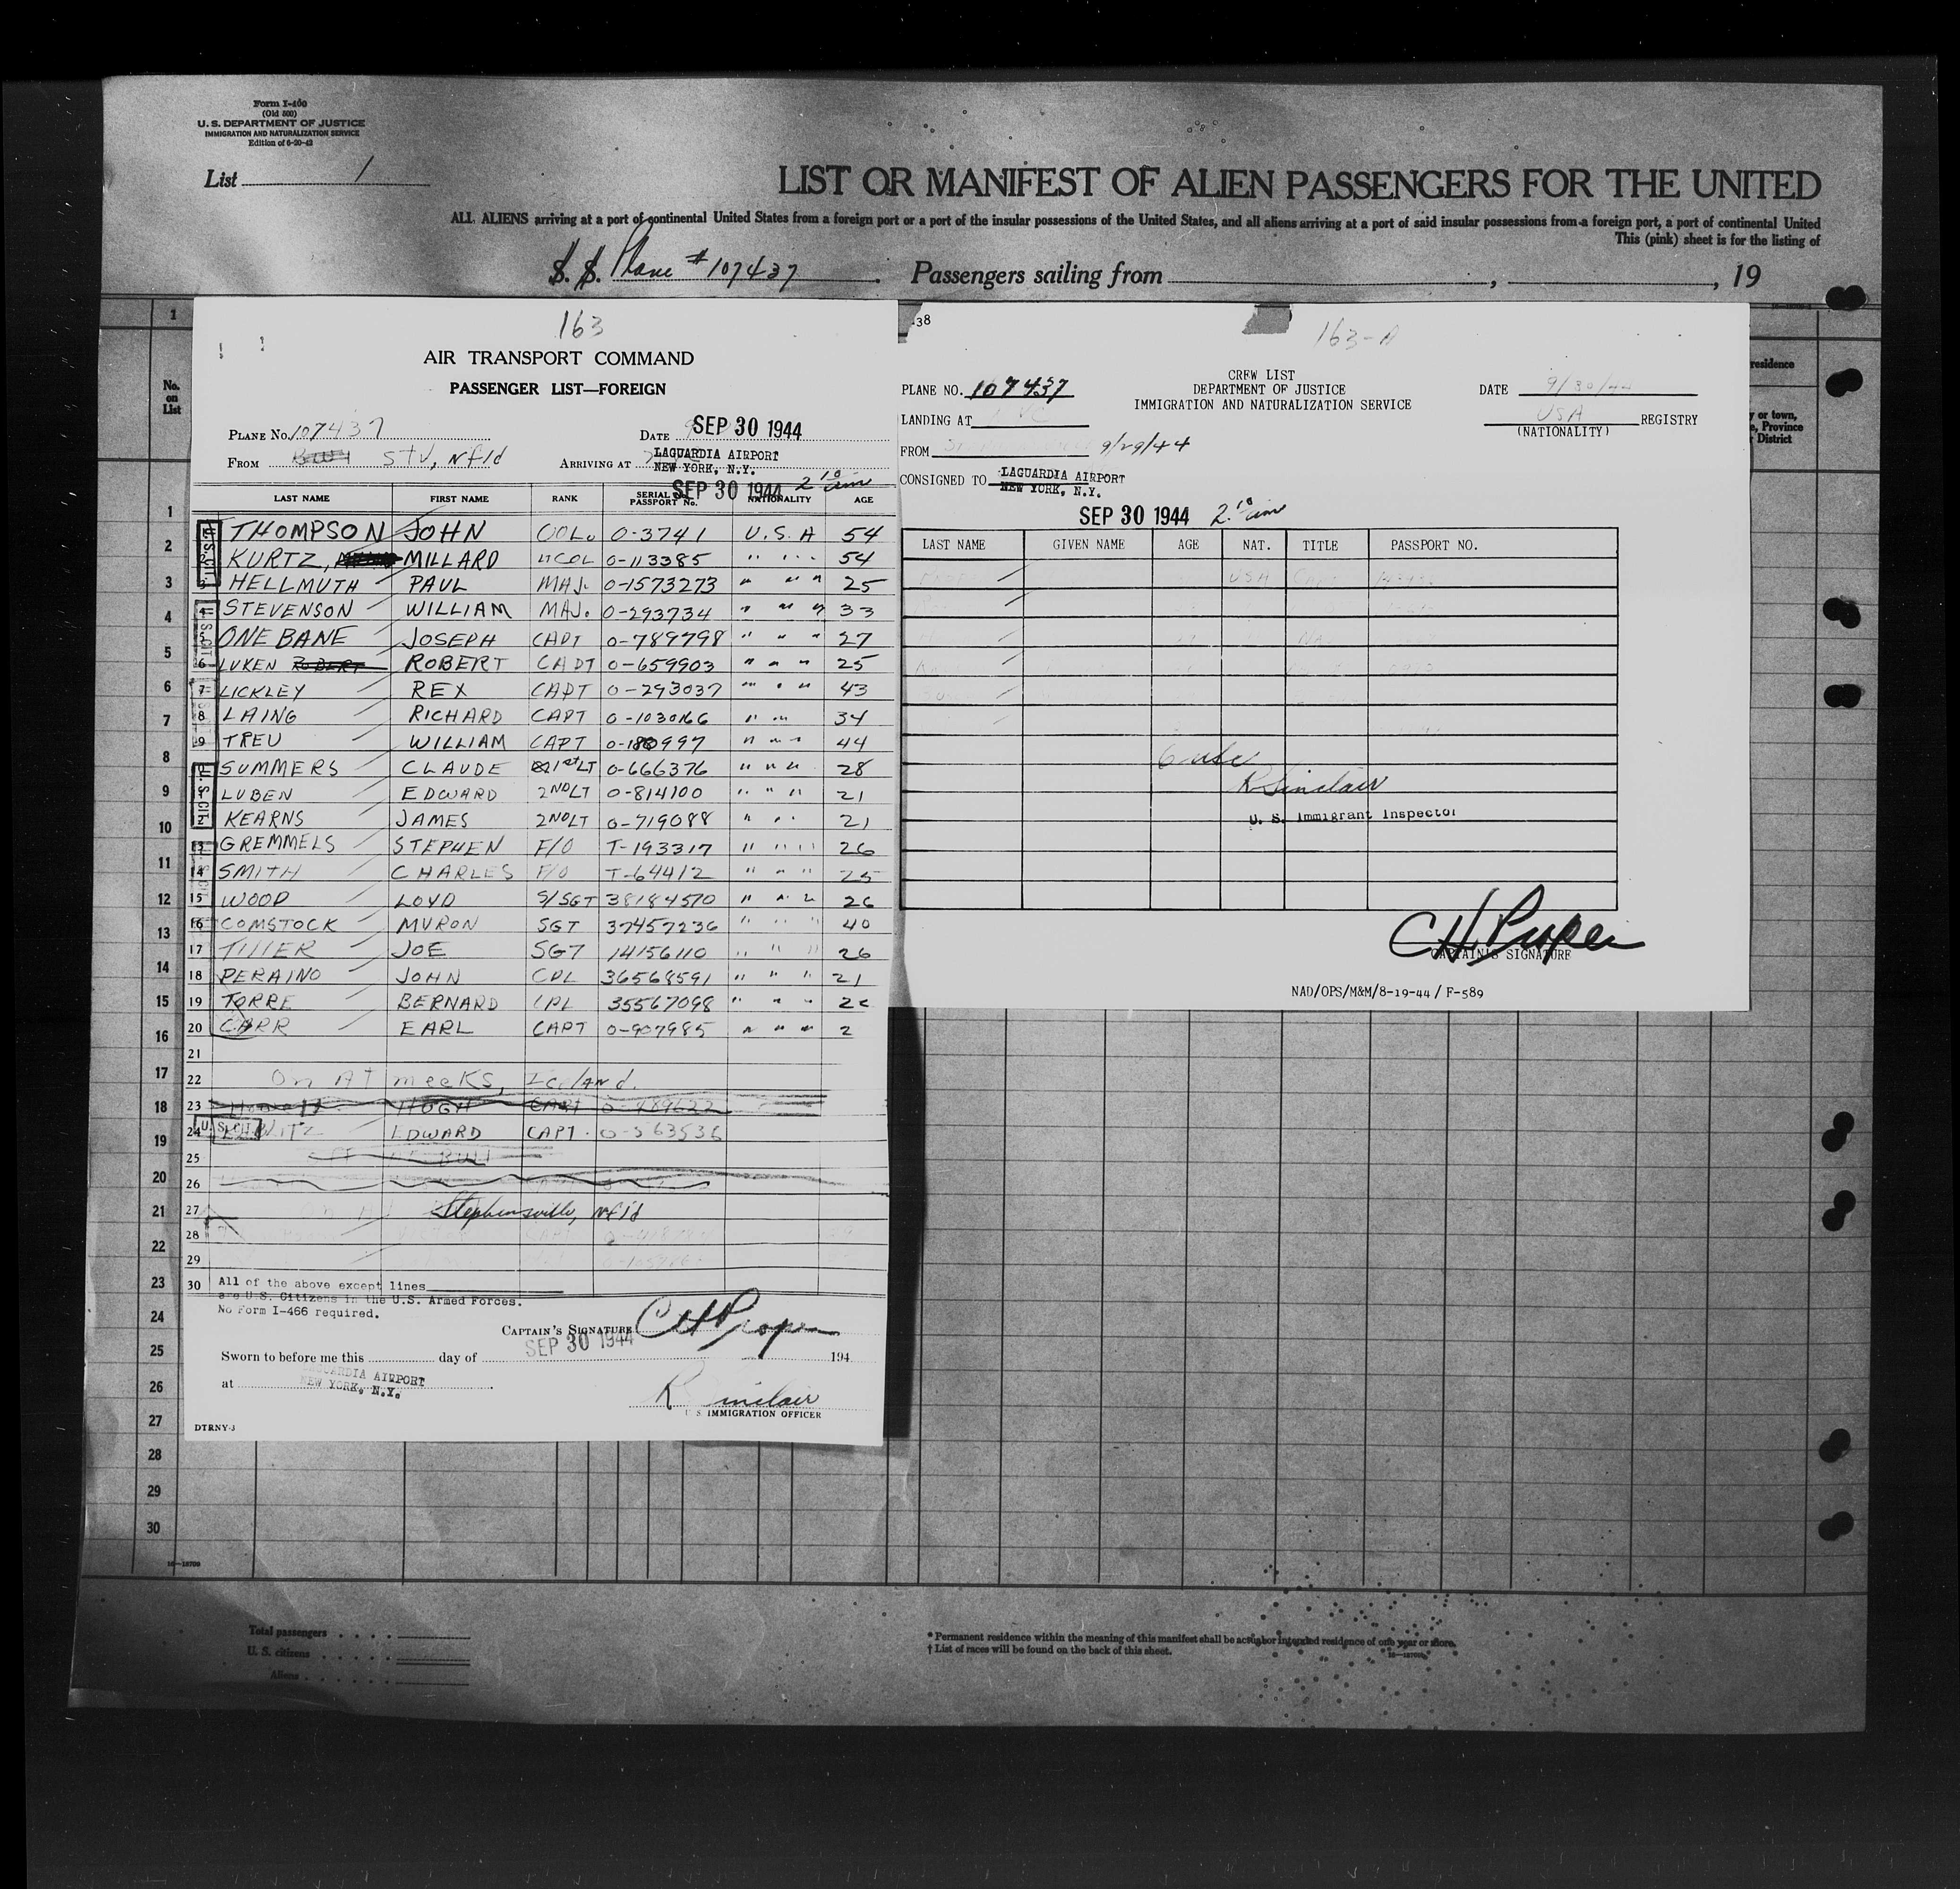 Form I-400
(Old 500)
U. S. DEPARTMENT OF JUSTICE
IMMIGRATION AND NATURALIZATION SERVICE
Edition of 6-20-42
List 1
LIST OR MANIFEST OF ALIEN PASSENGERS FOR THE UNITED
ALL ALIENS arriving at a port of continental United States from a foreign port or a port of the insular possessions of the United States, and all aliens arriving at a port of said insular possessions from a foreign port, a port of continental United
This (pink) sheet is for the listing of
S. S. Plane # 107437 Passengers sailing from , , 19
163
AIR TRANSPORT COMMAND
PASSENGER LIST—FOREIGN
PLANE No. 107437 DATE SEP 30 1944
FROM STV, Nfld ARRIVING AT LAGUARDIA AIRPORT
NEW YORK, N.Y.
SEP 30 1944 2 10 am
LAST NAME FIRST NAME RANK SERIAL No. PASSPORT No. NATIONALITY AGE
THOMPSON JOHN COL. 0-3741 U.S.A 54
2 KURTZ, MILLARD LTCOL 0-113385 " " " 54
3 HELLMUTH PAUL MAJ. 0-1573273 " " " 25
4 STEVENSON WILLIAM MAJ. 0-293734 " " " 33
5 ONEBANE JOSEPH CAPT 0-789798 " " " 27
6 LUKEN ROBERT ROBERT CAPT 0-659903 " " " 25
7 LICKLEY REX CAPT 0-293037 " " " 43
8 LAING RICHARD CAPT 0-1030166 " " 34
9 TREU WILLIAM CAPT 0-180997 " " " 44
SUMMERS CLAUDE 1st LT 0-666376 " " " 28
LUBEN EDWARD 2ND LT 0-814100 " " " 21
KEARNS JAMES 2ND LT 0-719088 " " " 21
13 GREMMELS STEPHEN F/O T-193317 " " " 26
14 SMITH CHARLES F/O T-64412 " " " 25
15 WOOD LOYD S/SGT 38184570 " " " 26
16 COMSTOCK MYRON SGT 37457236 " " " 40
17 TILLER JOE SGT 14156110 " " " 26
18 PERAINO JOHN CPL 36568591 " " " 21
19 TORRE BERNARD CPL 35567098 " " "
20 CARR EARL CAPT 0-907985 " " " 2
21
22 On At meeks, Iceland.
23 HUGH CAPT 0-489622
24 U.S. CIT. EDWARD CAPT. 0-563536
25
26
27 Stephensville, Nfld
28
29
30 All of the above except lines
are U.S. Citizens in the U.S. Armed Forces.
No Form I-466 required.
CAPTAIN'S SIGNATURE CH Proper
SEP 30 1944
Sworn to before me this day of 194
at LAGUARDIA AIRPORT
NEW YORK, N.Y.
R Sinclair
U S IMMIGRATION OFFICER
DTRNY-3
38
163-A
CREW LIST
DEPARTMENT OF JUSTICE
IMMIGRATION AND NATURALIZATION SERVICE
PLANE NO. 107437 DATE 9/30/44
LANDING AT NYC USA REGISTRY
(NATIONALITY)
FROM 9/29/44
CONSIGNED TO LAGUARDIA AIRPORT
NEW YORK, N.Y.
SEP 30 1944 2 10 am
LAST NAME GIVEN NAME AGE NAT. TITLE PASSPORT NO.
USA
6 usc
R Sinclair
U. S. Immigrant Inspector
CH Proper
CAPTAIN'S SIGNATURE
NAD/OPS/M&M/8-19-44 / F-589
No.
on
List
1
2
3
4
5
6
7
8
9
10
11
12
13
14
15
16
17
18
19
20
21
22
23
24
25
26
27
28
29
30
residence
y or town,
e, Province
District
Total passengers
U. S. citizens
Aliens
* Permanent residence within the meaning of this manifest shall be actual or intended residence of one year or more.
† List of races will be found on the back of this sheet.